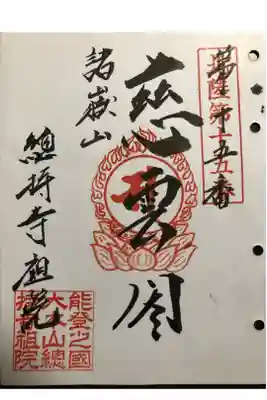 北陸第十五番
慈雲閣
諸嶽山
總持寺祖院
能登之國
大本山總
持寺祖院